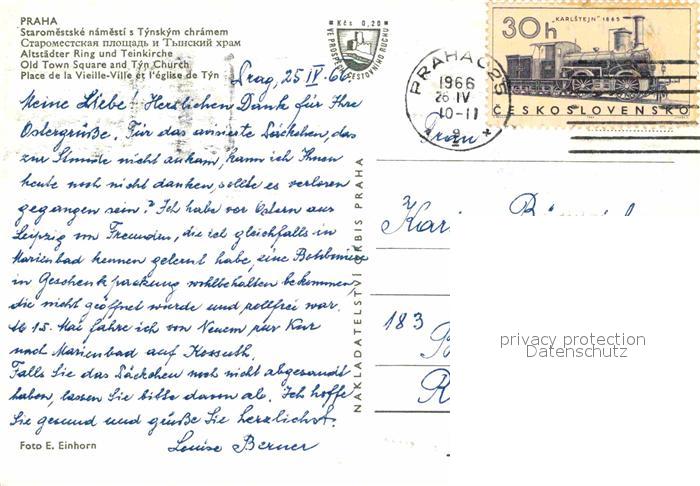 PRAHA
Staroměstské náměstí s Týnským chrámem
Староместская площадь и Тынский храм
Altstädter Ring und Teinkirche
Old Town Square and Týn Church
Place de la Vieille-Ville et l'église de Týn
Prag, 25 IV. 66
Meine Liebe! Herzlichen Dank für Ihre
Ostergrüße. Für das avisierte Päckchen, das
zur Stunde nicht ankam, kann ich Ihnen
heute noch nicht danken, sollte es verloren
gegangen sein? Ich habe vor Ostern aus
Leipzig von Freunden, die ich gleichfalls in
Marienbad kennen gelernt habe, eine Bonboniere
in Geschenkpackung wohlbehalten bekommen,
die nicht geöffnet wurde und zollfrei war.
Ab 15. Mai fahre ich von Neuem zur Kur
nach Marienbad auf Kossuth.
Falls Sie das Päckchen noch nicht abgesandt
haben, lassen Sie bitte davon ab. Ich hoffe
Sie gesund und grüße Sie herzlichst.
Louise Berner
Foto E. Einhorn
Kčs 0,20
VE PROSPĚCH CESTOVNÍHO RUCHU
NAKLADATELSTVÍ ORBIS PRAHA
30h
"KARLŠTEJN" 1865
ČESKOSLOVENSKO
PRAHA 025
1966
26 IV
10-11
Frau
Kar
183
R
privacy protection
Datenschutz